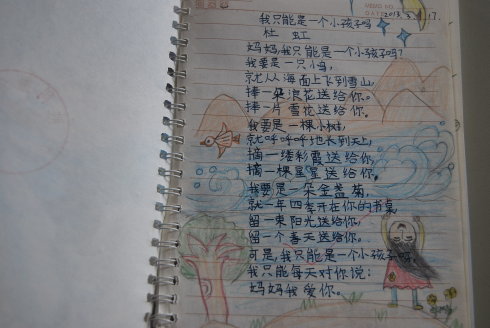 MEMO NO.
DATE 2013.3.17.
我只能是一个小孩子吗
杜 虹
妈妈,我只能是一个小孩子吗?
我要是一只小鸟,
就从海面上飞到雪山,
捧一朵浪花送给你。
捧一片雪花送给你。
我要是一棵小树,
就呼呼呼地长到天上,
摘一缕彩霞送给你,
摘一棵星星送给你。
我要是一朵金盏菊,
就一年四季开在你的书桌,
留一束阳光送给你,
留一个春天送给你。
可是,我只能是一个小孩子吗?
我只能每天对你说:
妈妈我爱你。